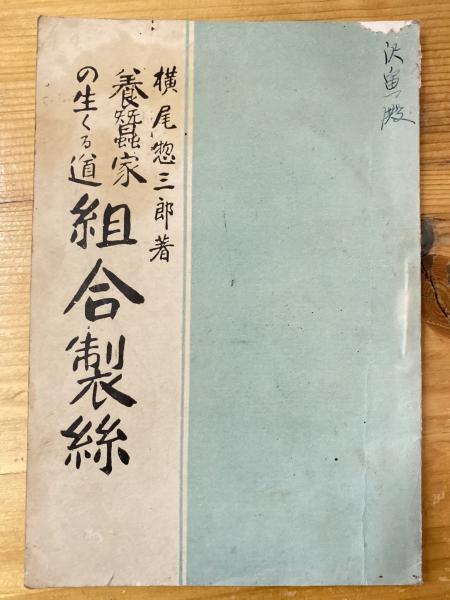 横尾惣三郎著
養蚕家
の生くる道
組合製絲
殿